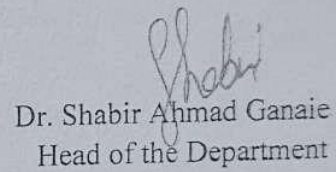 Shabir
Dr. Shabir Ahmad Ganaie
Head of the Department